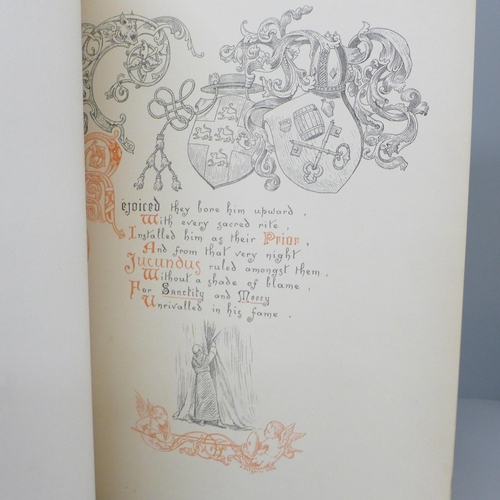 Rejoiced they bore him upward,
With every sacred rite,
Installed him as their Prior,
And from that very night
Jucundus ruled amongst them,
Without a shade of blame,
For Sanctity and Mercy
Unrivalled in his fame.